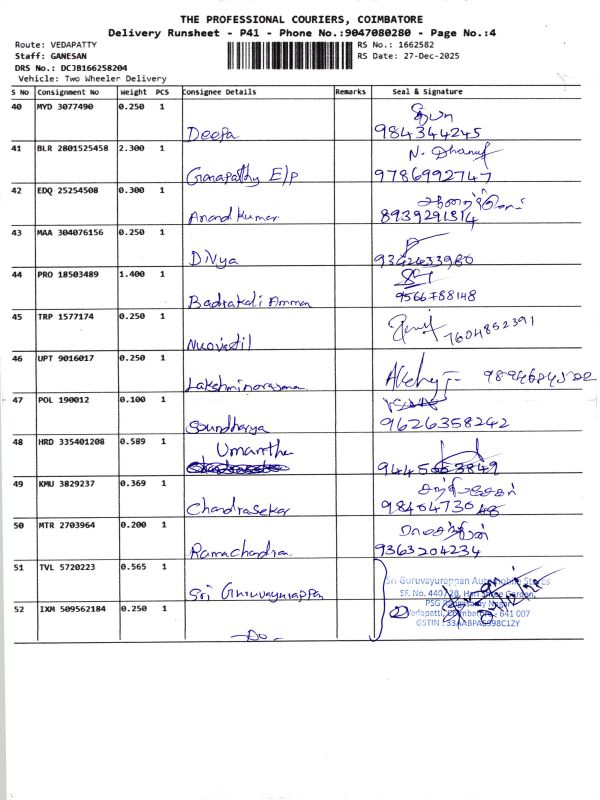 THE PROFESSIONAL COURIERS, COIMBATORE
Delivery Runsheet - P41 - Phone No.:9047080280 - Page No.:4
Route: VEDAPATTY
RS No.: 1662582
Staff: GANESAN
RS Date: 27-Dec-2025
DRS No.: DCJB166258204
Vehicle: Two Wheeler Delivery
S No Consignment No Weight PCS Consignee Details Remarks Seal & Signature
40 MYD 3077490 0.250 1
Deepa 984344245
41 BLR 2801525458 2.300 1 N. Dhanuf
Ganapathy E/P 9786992747
42 EDQ 25254508 0.300 1
Anand Kumar 8939291314
43 MAA 304076156 0.250 1
Divya 9342633980
44 PRO 18503489 1.400 1
Badrakali Amman 9566788148
45 TRP 1577174 0.250 1
7604852391
46 UPT 9016017 0.250 1
Lakshminarasma
47 POL 190012 0.100 1
Soundharya 9626358242
48 HRD 335401208 0.589 1 Umantha
49 KMU 3829237 0.369 1
Chandrasekar
50 MTR 2703964 0.200 1
Ramachandran 9363204234
51 TVL 5720223 0.565 1
Sri Guruvayurappan
Sri Guruvayurappan Automobile Stores
52 IXM 509562184 0.250 1
-Do-